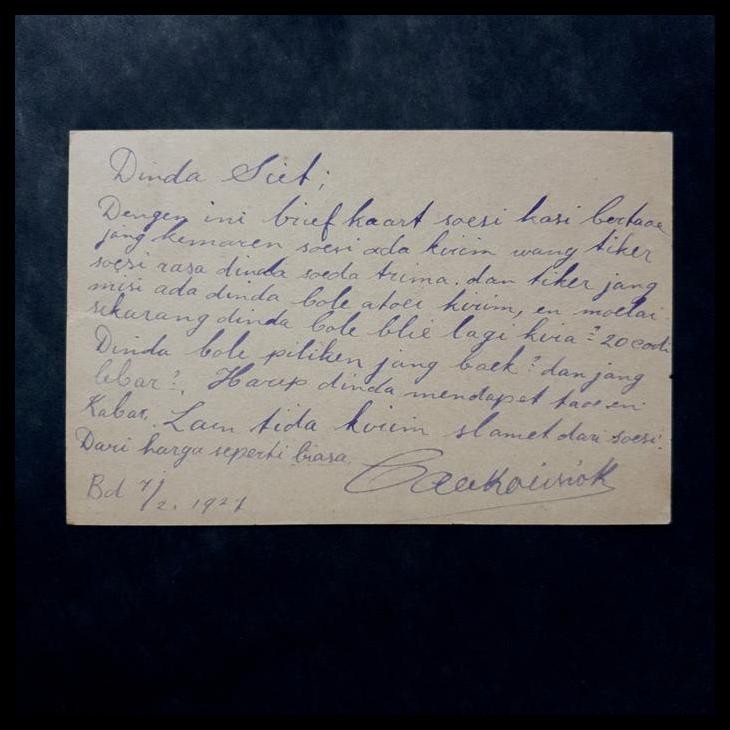 Dinda Siet;
Dengen ini brief kaart soesi kasi bertaoe
jang kemaren soesi ada kirim wang tiker
soesi rasa dinda soeda trima. dan tiker jang
misi ada dinda bole atoer kirim, en moelai
sekarang dinda bole blie lagi kira² 20 codi
Dinda bole piliken jang baek² dan jang
lebar². Harep dinda mendapet taoe en
Kabar. Lain tida kirim slamet dari soesi.
Dari harga seperti biasa.
Bd 7/2. 1921